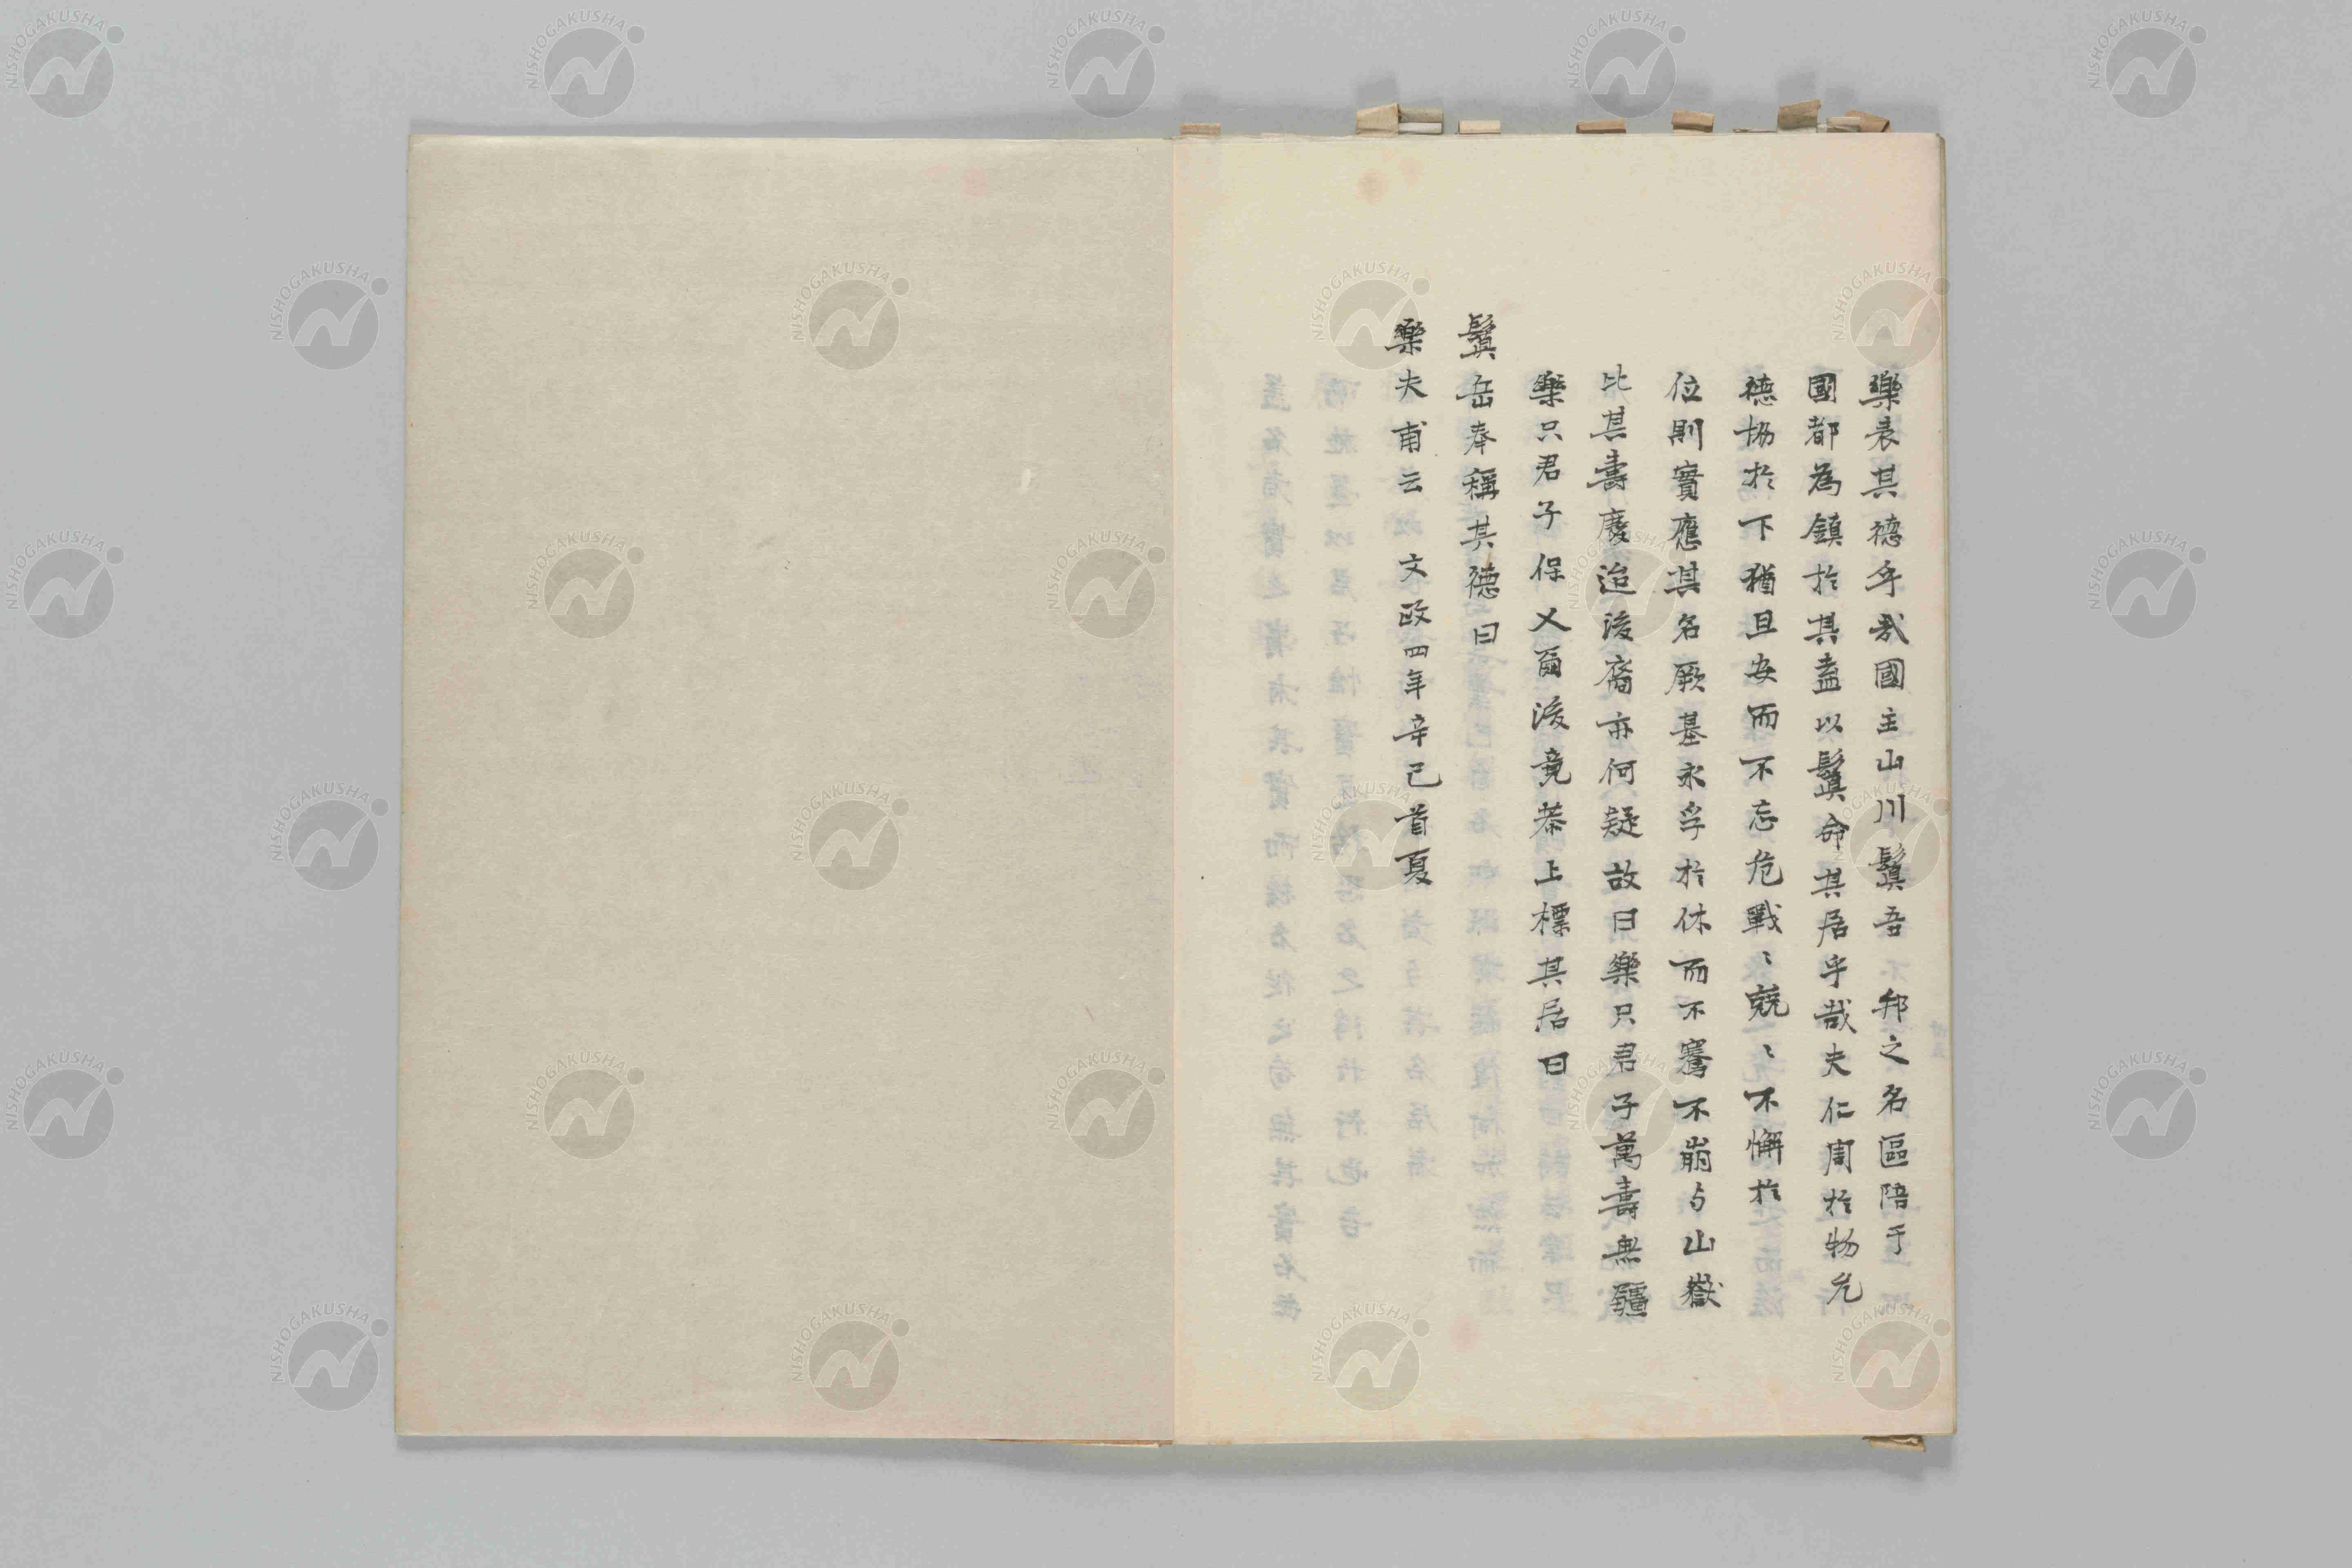 樂表其德乎哉國主山川鬒吾邦之名區陪于
國都為鎮於其盍以鬒命其居乎哉夫仁周於物允
德協於下猶且安而不忘危戰〻兢〻不懈於
位則實應其名厥基永孚於休而不騫不崩与山嶽
比其壽慶迨後裔亦何疑故曰樂只君子萬壽無疆
樂只君子保乂爾後竟恭上標其居曰
鬒岳奉稱其德曰
樂夫甫云 文政四年辛己首夏
NISHOGAKUSHA